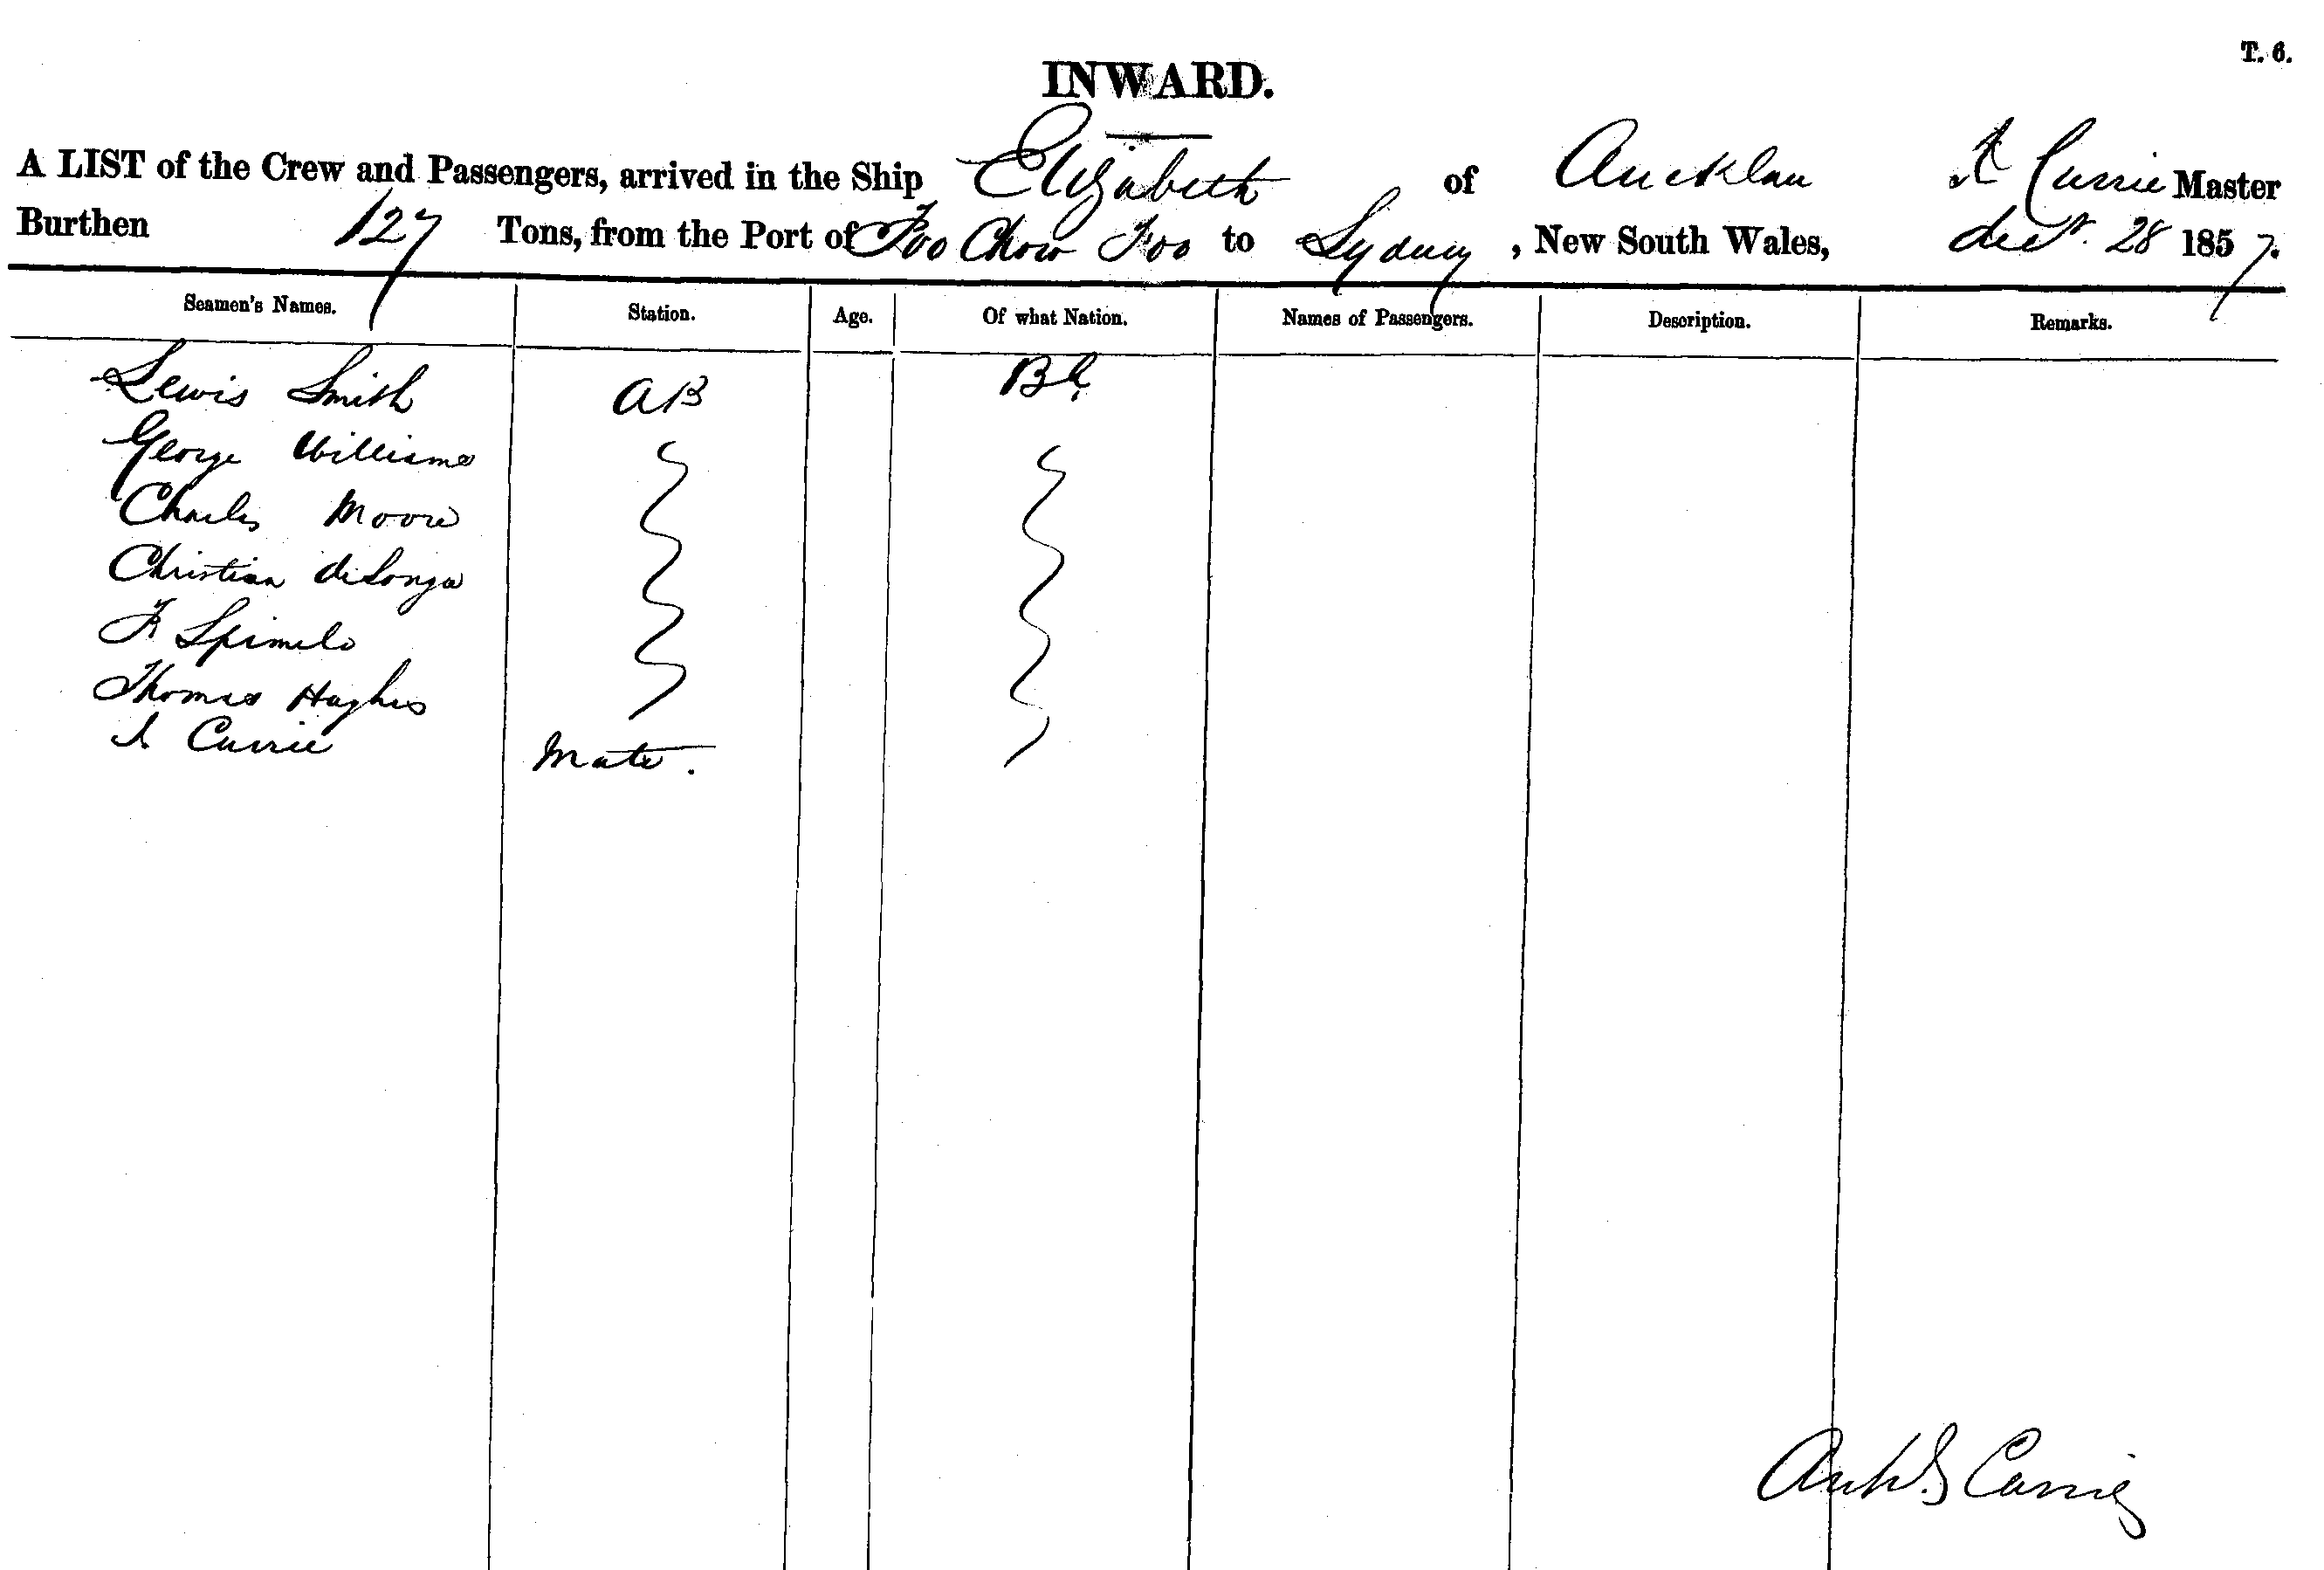 T. 6.
INWARD.
A LIST of the Crew and Passengers, arrived in the Ship Elizabeth of Aucklan A Currie Master
Burthen 127 Tons, from the Port of Foo Chow Foo to Sydney, New South Wales, Decr. 28 1857.
Seamen's Names. Station. Age. Of what Nation. Names of Passengers. Description. Remarks.
Lewis Smith AB
George Williams
Charles Moore
Christian
F
Thomas Hughes
Currie Mate.
Currie